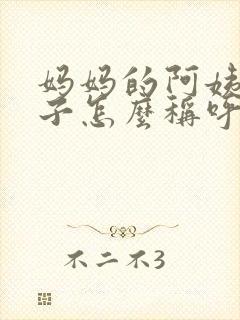 妈妈的阿姨
子怎麼稱呼
不二不3